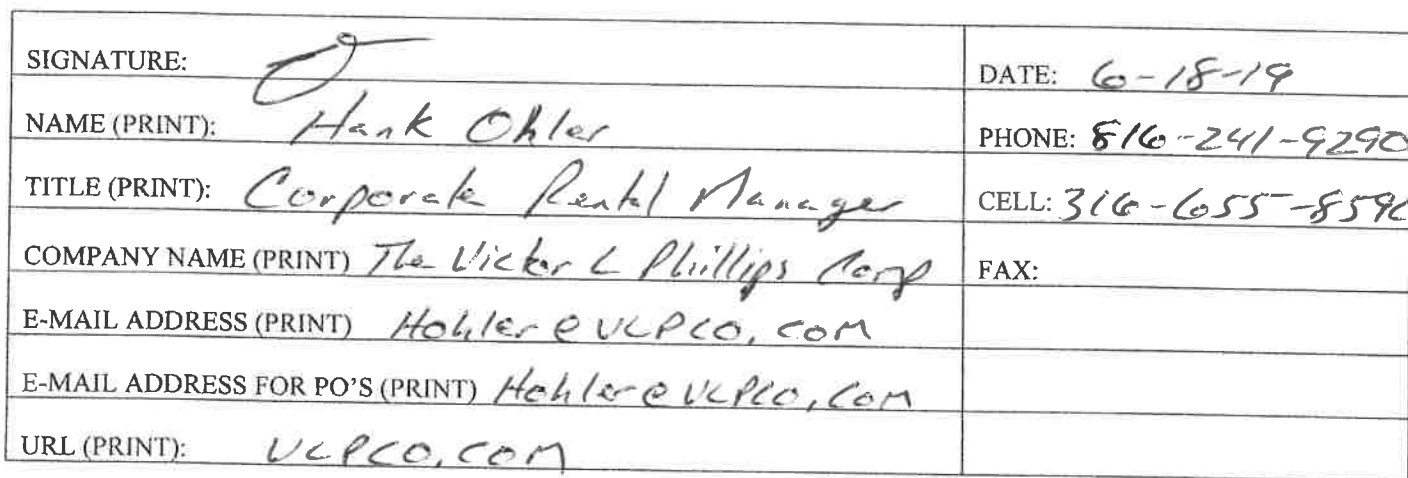 SIGNATURE:
DATE: 6-18-19
NAME (PRINT): Hank Ohler
PHONE: 816-241-9290
TITLE (PRINT): Corporate Rental Manager
CELL: 316-655-8590
COMPANY NAME (PRINT) The Victor L Phillips Corp
FAX:
E-MAIL ADDRESS (PRINT) Hohler@VLPCO.COM
E-MAIL ADDRESS FOR PO'S (PRINT) Hohler@VLPCO.COM
URL (PRINT): VLPCO.COM